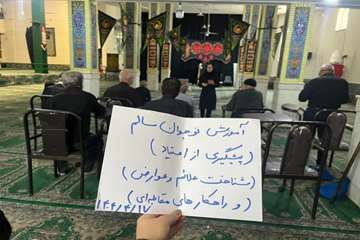 آموزش نوجوان سالم
(پیشگیری از اعتیاد)
(شناخت علائم و عوارض)
(و راهکارهای مقابله‌ای)